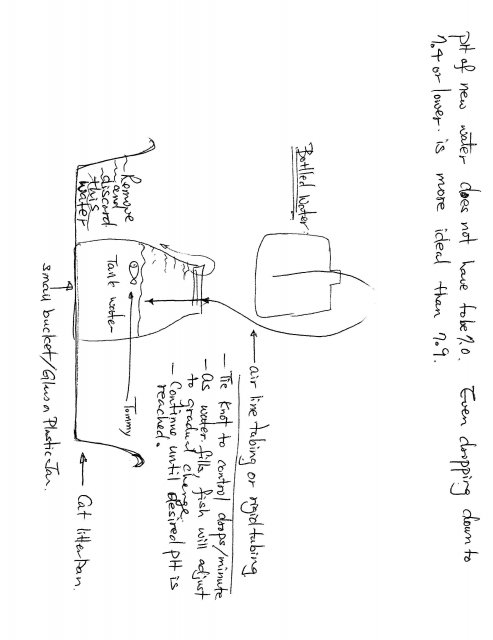 pH of new water does not have to be 7.0. Even dropping down to
7.4 or lower. is more ideal than 7.9.
Bottled Water
← air line tubing or rigid tubing
- Tie knot to control drops/minute
- As water fills, fish will adjust
to gradual change
- Continue until desired pH is
reached.
Remove
and
discard
this
water
Tank water
Tommy
Cat litter pan.
small bucket/Glass or Plastic Jar.